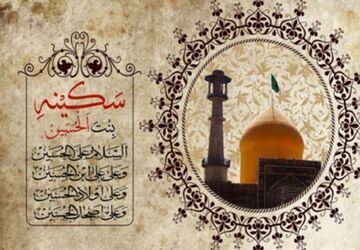 سكينه
بنت الحسين
السلام علی الحسین
وعلی علی ابن الحسین
وعلی اولاد الحسین
وعلی اصحاب الحسین